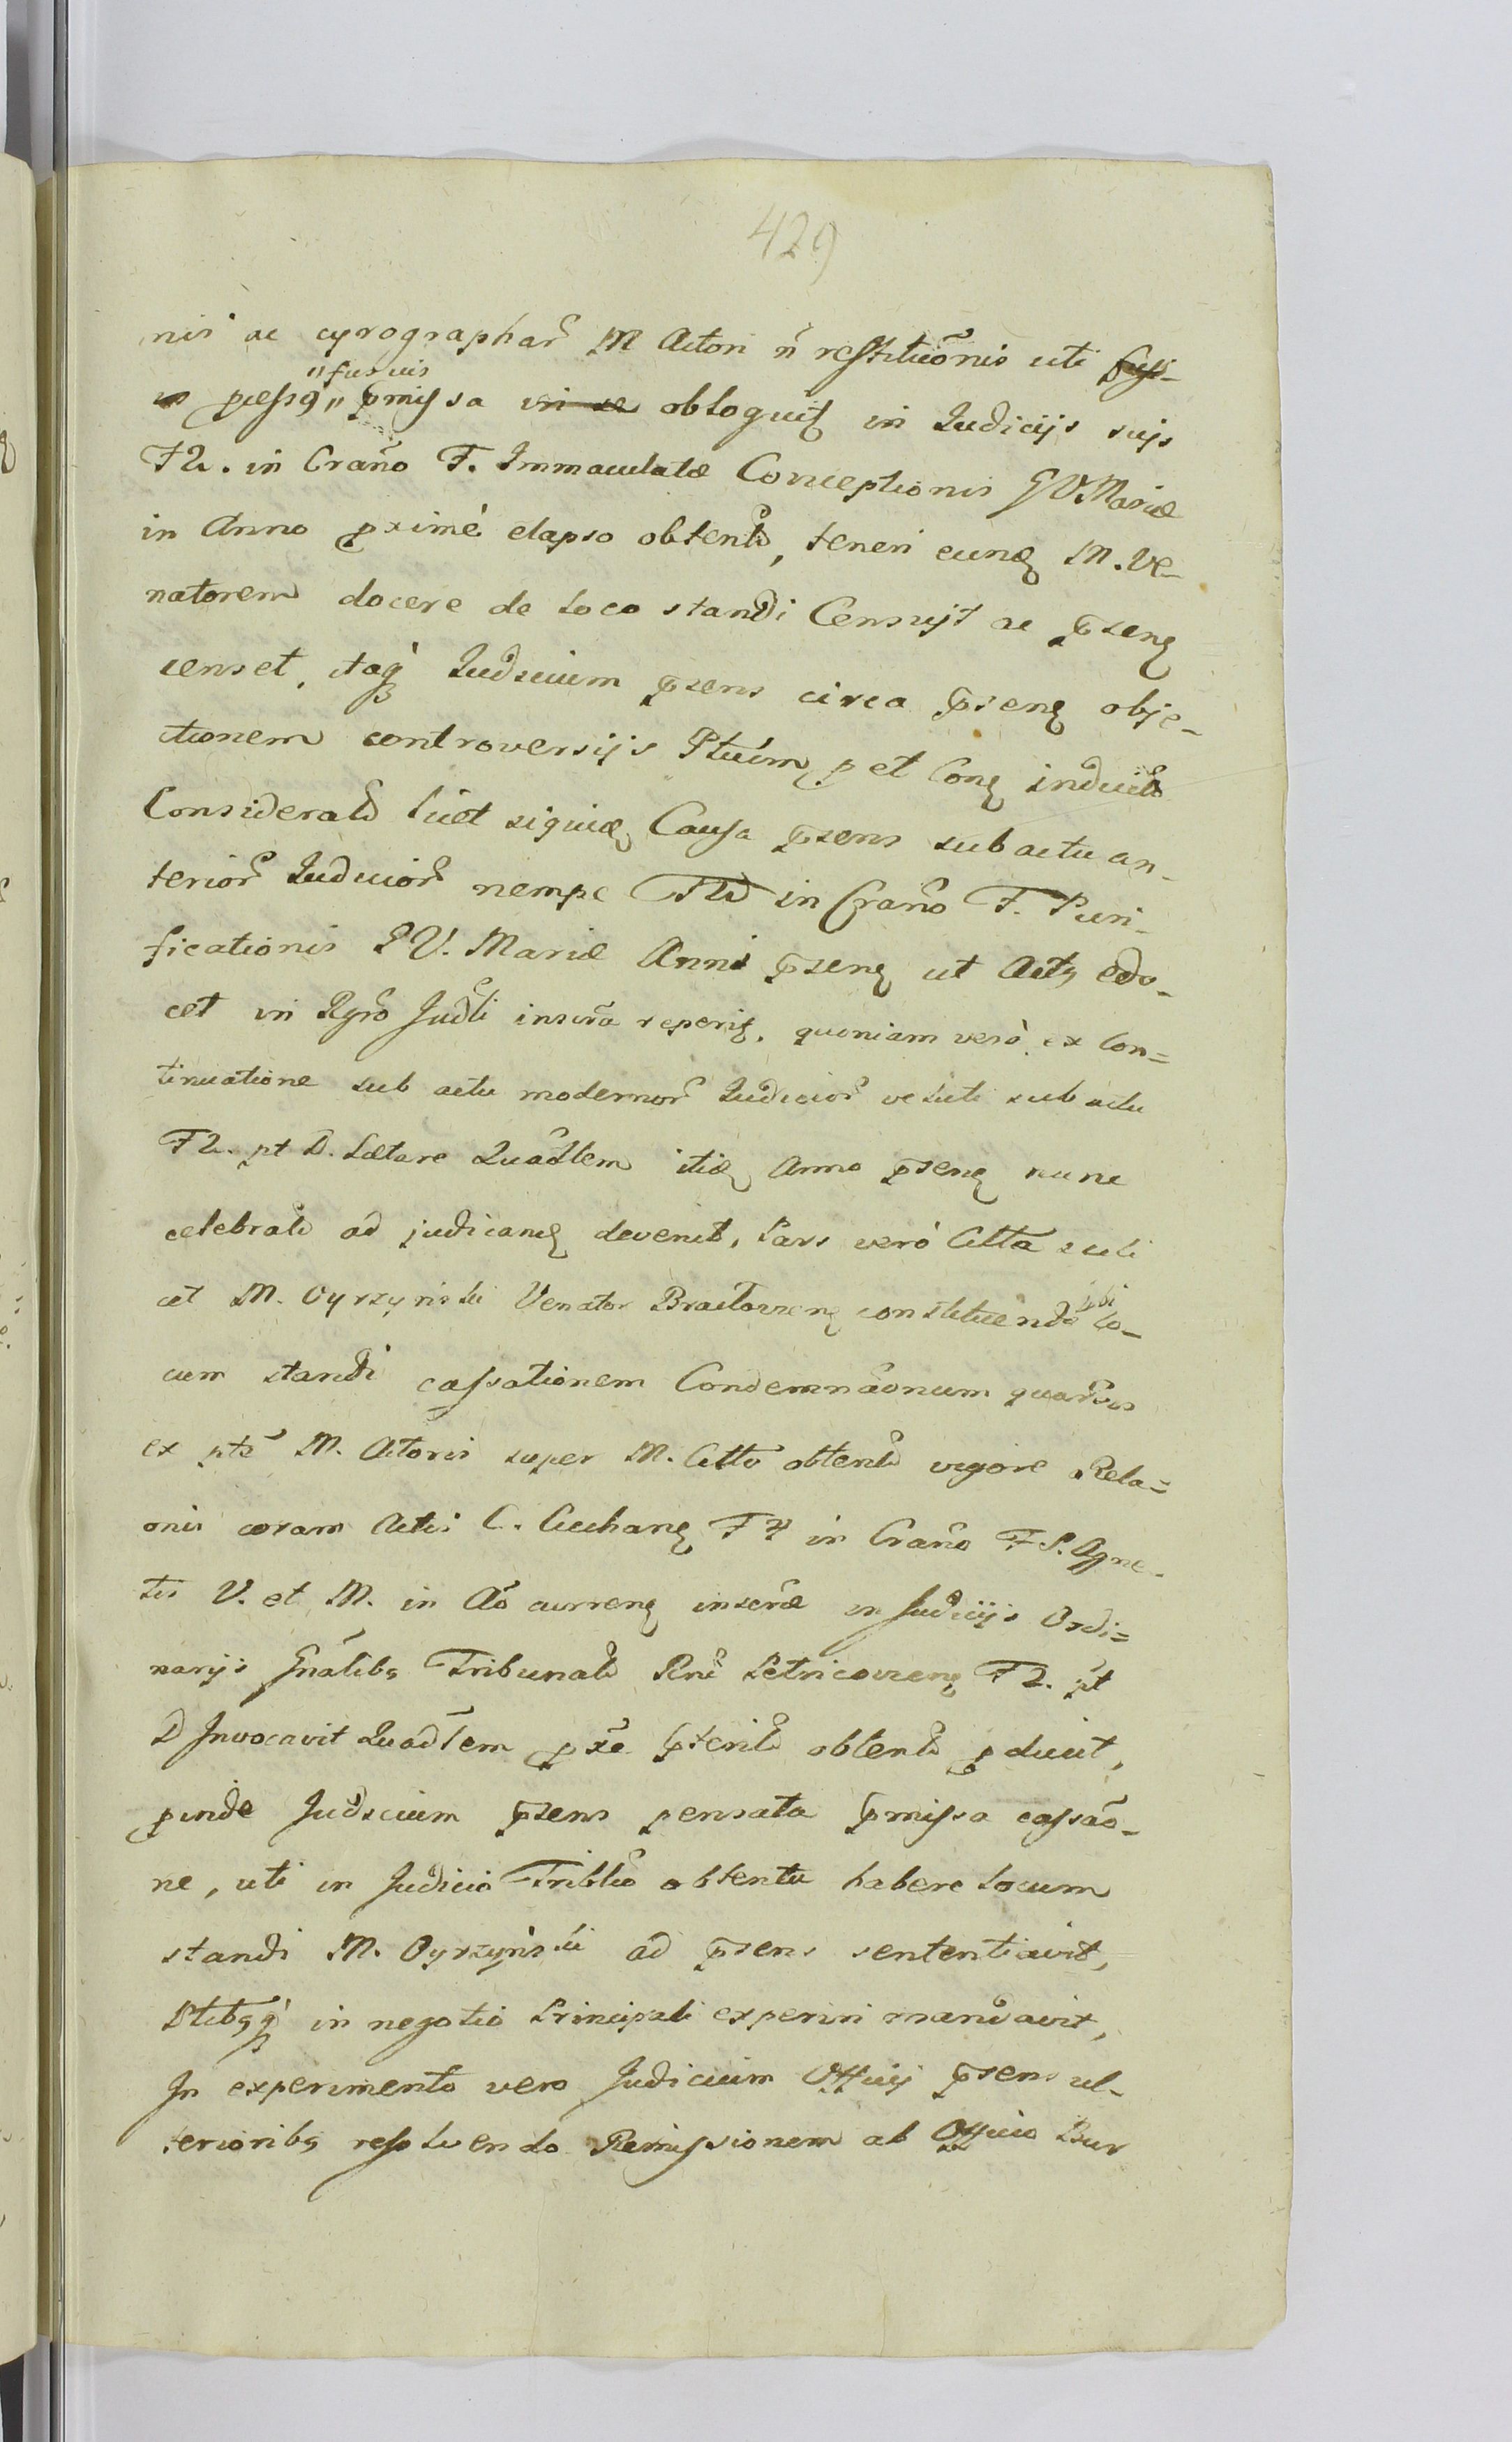 429
nis ac cyrographar M Actori ñ restituõnis uti
"fusius
pressiq" pmissa obloquit in Judicijs sujs
F2. in Crano F. Immaculatæ Conceptionis BV Mariæ
in Anno pximè elapso obtent, teneri eund M. Ve-
natorem docere de Loco standi Censujt ac psen
censet, itaq Judicium psens circa psen obje-
ctionem controversijs Ptium, p et Con induct
Considerat licet siquid Causa psens sub actu an-
terior Judicior nempe F2 in Crano F. Puri-
ficationis BV. Mariæ Anni psen ut Acts edo-
cet in Rgro Judli inscra reperit, quoniam verò ex Con=
tinuatione sub actu modernor Judicior veluti sub actu
F2. pt D. Lætare Quadlem itid Anno psen nunc
celebrat ad judicand devenit, Pars verò Citta scili
cet M. Oyrzynski Venator Braclavien constituendo sibi Lo-
cum standi cassationem Condemnaõnum quarsvis
ex pte M. Actoris super M. Citto obtent vigore Rela=
onis coram Actis C. Ciechan F4 in Crano F S. Agne-
tis V. et M. in Aõ curren inscræ in Judicijs Ordi=
narijs Gnalibs Tribunal Rni Petricovien F2. pt
D Invocavit Quadlem pxe pterit obtent pducit,
pinde Judicium psens pensata pmissa cassaõ-
ne, uti in Judicio Triblio obtentu habere Locum
standi M. Oyrzynski ad psens sententiavit,
Ptibsq in negotio Principali experiri mandavit,
In experimento vero Judicium Officij psens ul-
terioribs resolvendo Remissionem ab Officio Bur